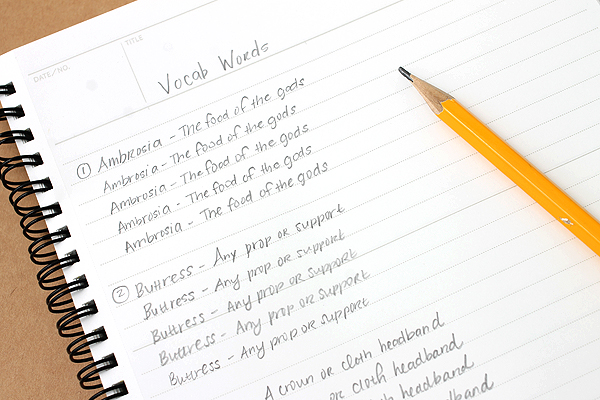 DATE/NO.
TITLE
Vocab Words
1 Ambrosia - The food of the gods
Ambrosia - The food of the gods
Ambrosia - The food of the gods
Ambrosia - The food of the gods
Ambrosia - The food of the gods
2 Buttress - Any prop or support
Buttress - Any prop or support
Buttress - Any prop or support
Buttress - Any prop or support
Buttress - Any prop or support
A crown or cloth headband
or cloth headband
cloth headband
headband